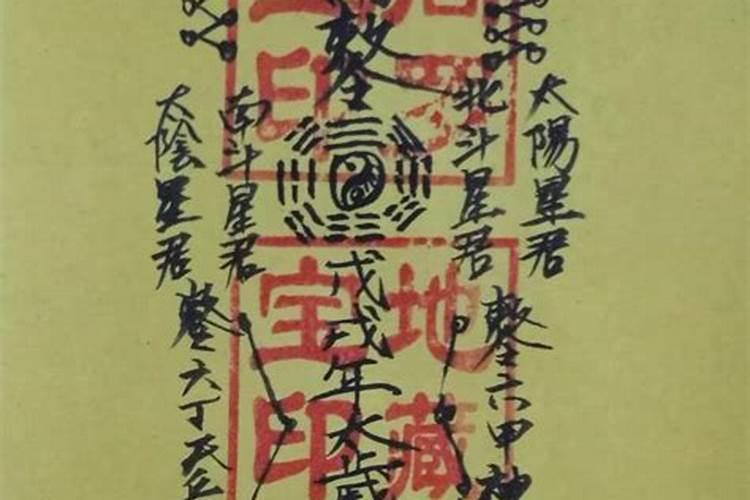 太陽星君
北斗星君
南斗星君
太陰星君
六甲神
戊戌年太歲
六丁天
地藏
宝印
印